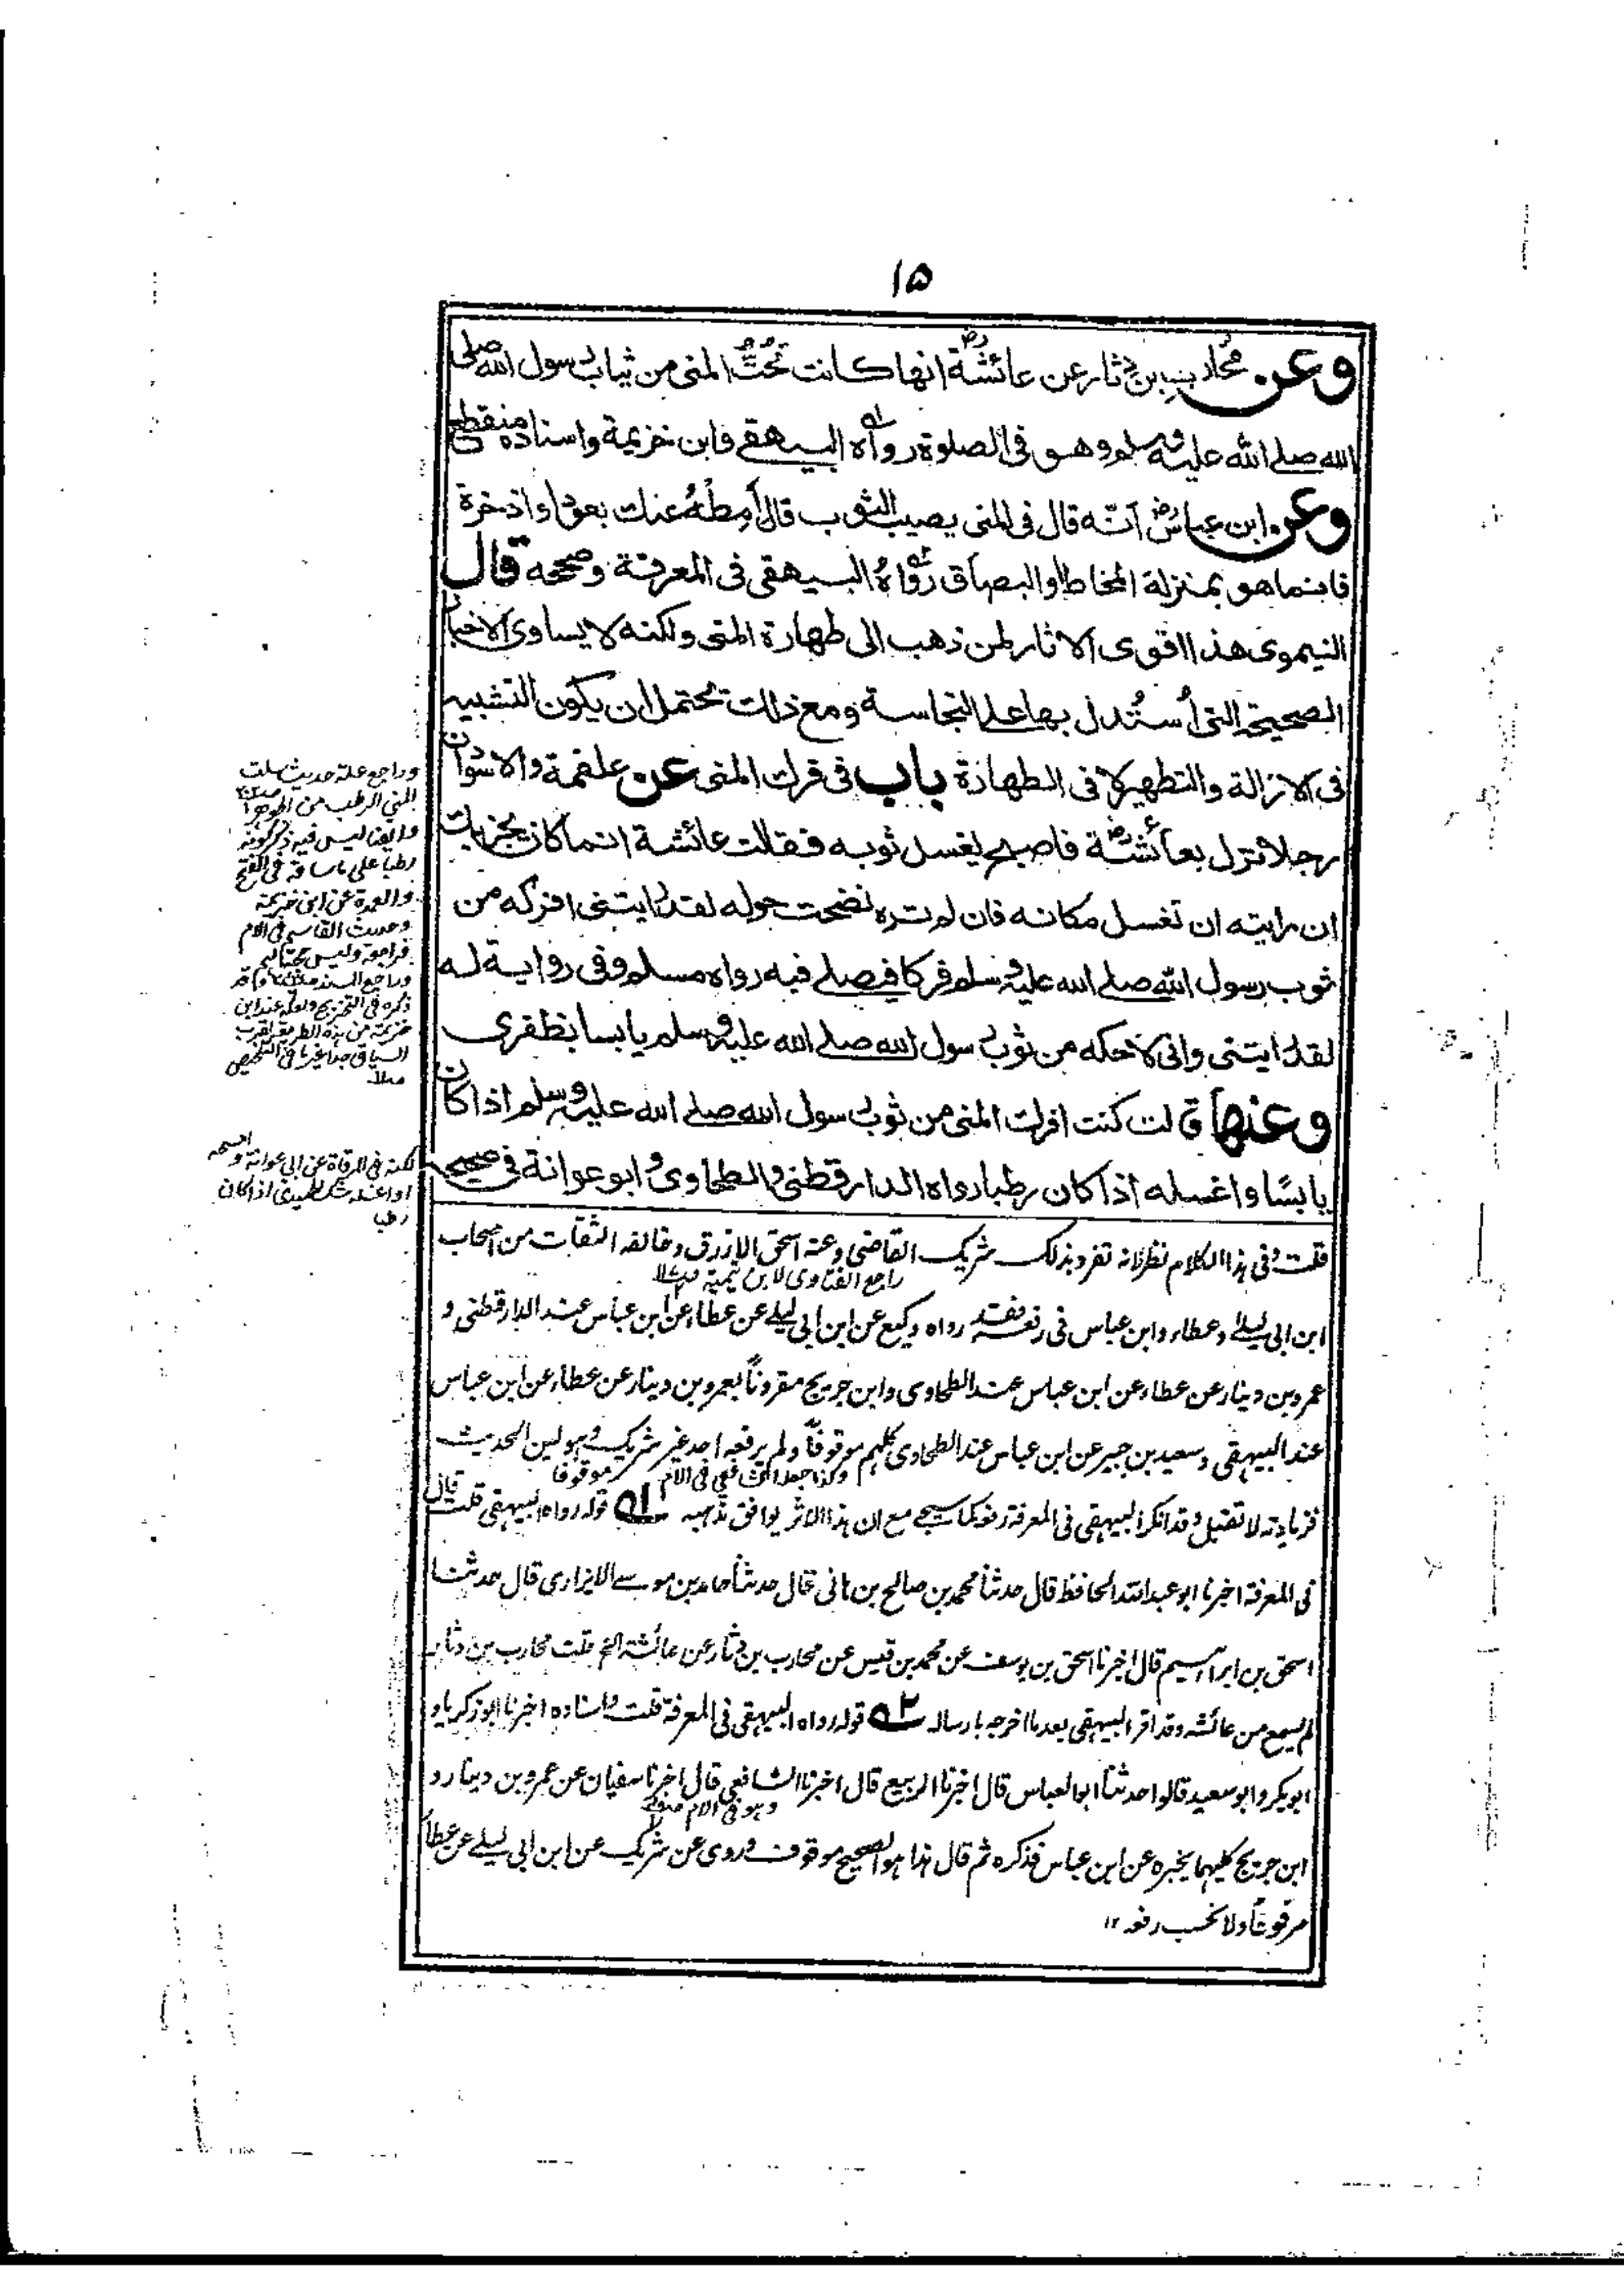 ۱۵
وعن محارب بن دثار عن عائشة رض انها كانت تَحُتُّ المنى من ثياب رسول الله صلى
الله صلى الله عليه وسلم وهو فى الصلوة رواه البيهقى وابن خزيمة واسناده منقطع
وعن ابن عباس رض انّه قال فى المنى يصيب الثوب قال اَمِطْهُ عنك بعود او اذخرة
فانما هو بمنزلة المخاط او البصاق رواهُ البيهقى فى المعرفة وصححه قال
النيموى هذا اقوى الاثار لمن ذهب الى طهارة المنى ولكنه لا يساوى الاخبار
الصحيحة التى اُستُدل بها على النجاسة ومع ذلك يحتمل ان يكون التشبيه
فى الازالة والتطهير لا فى الطهارة باب فى فرك المنى عن علقمة والاسود ان
رجلا نزل بعائشة رض فاصبح يغسل ثوبه فقالت عائشة انما كان يجزيك
ان رايته ان تغسل مكانه فان لم تره نضحت حوله لقد رايتنى افركه من
ثوب رسول الله صلى الله عليه وسلم فركا فيصلى فيه رواه مسلم وفى رواية له
لقد رايتنى وانى لاحكه من ثوب رسول الله صلى الله عليه وسلم يابسا بظفرى
وعنها قالت كنت افرك المنى من ثوب رسول الله صلى الله عليه وسلم اذا كان
يابسًا واغسله اذا كان رطبا رواه الدارقطنى والطحاوى وابو عوانة فى صحيحه
وراجع علة حديث سلت
المني الرطب من
وايضا ليس فيه ذكر كونه
رطبا على ما ساقه فى الفتح
والعمدة عن ابن خزيمة
وحديث القاسم فى الام
فراجعه وليس
وراجع المسند
ذكره فى التخريج ولعله عند ابن
خزيمة من هذه الطريق اقرب
السياق جدا فى التلخيص
لكنه فى المرقاة عن ابى عوانة
او اغسله شك الحميدى اذا كان
رطبا
قلت وفى هذا الكلام نظر لانه تفرد بذلك شريك القاضى وعنه اسحق الازرق وخالفه الثقات من اصحاب
راجع الفتاوى لابن تيمية
ابن ابى ليلى وعطاء وابن عباس فى رفعه فقد رواه وكيع عن ابن ابى ليلى عن عطاء عن ابن عباس عند الدارقطنى و
عمرو بن دينار عن عطاء عن ابن عباس عند الطحاوى وابن جريج مقروناً بعمرو بن دينار عن عطاء عن ابن عباس
عند البيهقى وسعيد بن جبير عن ابن عباس عند الطحاوى كلهم موقوفاً ولم يرفعه احد غير شريك وهو لين الحديث
وكذا جعله الشافعي فى الام موقوفا
فزيادته لا تقبل وقد انكر البيهقى فى المعرفة رفعه كما سيجئ مع ان هذا الاثر يوافق مذهبه ۱ه قوله رواه البيهقى قلت قال
فى المعرفة اخبرنا ابو عبد الله الحافظ قال حدثنا محمد بن صالح بن هانى قال حدثنا حامد بن موسى الابزارى قال حدثنا
اسحق بن ابراهيم قال اخبرنا اسحق بن يوسف عن محمد بن قيس عن محارب بن دثار عن عائشة الخ قلت محارب بن دثار
لم يسمع من عائشة وقد اقر البيهقى بعد ما اخرجه بارساله ۲ه قوله رواه البيهقى فى المعرفة قلت واسناده اخبرنا ابو زكريا و
ابو بكر وابو سعيد قالوا حدثنا ابو العباس قال اخبرنا الربيع قال اخبرنا الشافعي قال اخبرنا سفيان عن عمرو بن دينار و
وهو فى الام
ابن جريج كليهما يخبره عن ابن عباس فذكره ثم قال هذا هو الصحيح موقوف وروى عن شريك عن ابن ابى ليلى عن عطاء
مرفوعًا ولا نحسب رفعه ۱۲